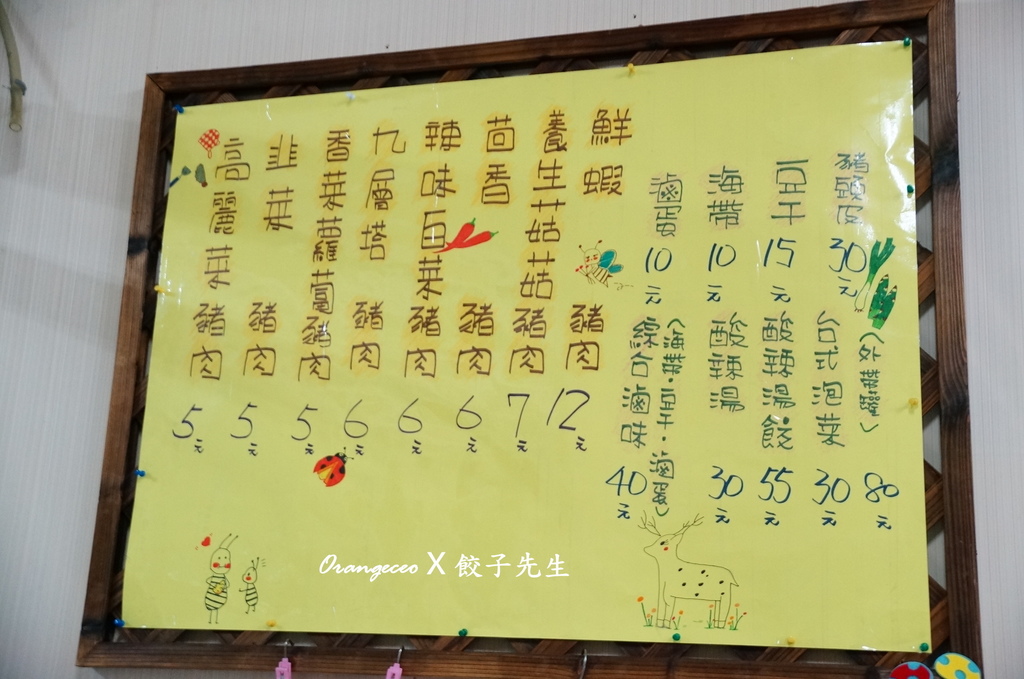 豬頭皮 30元
豆干 15元
海帶 10元
滷蛋 10元
(外帶罐) 80元
台式泡菜 30元
酸辣湯餃 55元
酸辣湯 30元
(海帶.豆干.滷蛋)
綜合滷味 40元
鮮蝦豬肉 12元
養生菇菇豬肉 7元
茴香豬肉 6元
辣味白菜豬肉 6元
九層塔豬肉 6元
香菜蘿蔔豬肉 5元
韭菜豬肉 5元
高麗菜豬肉 5元
Orangeceo X 餃子先生